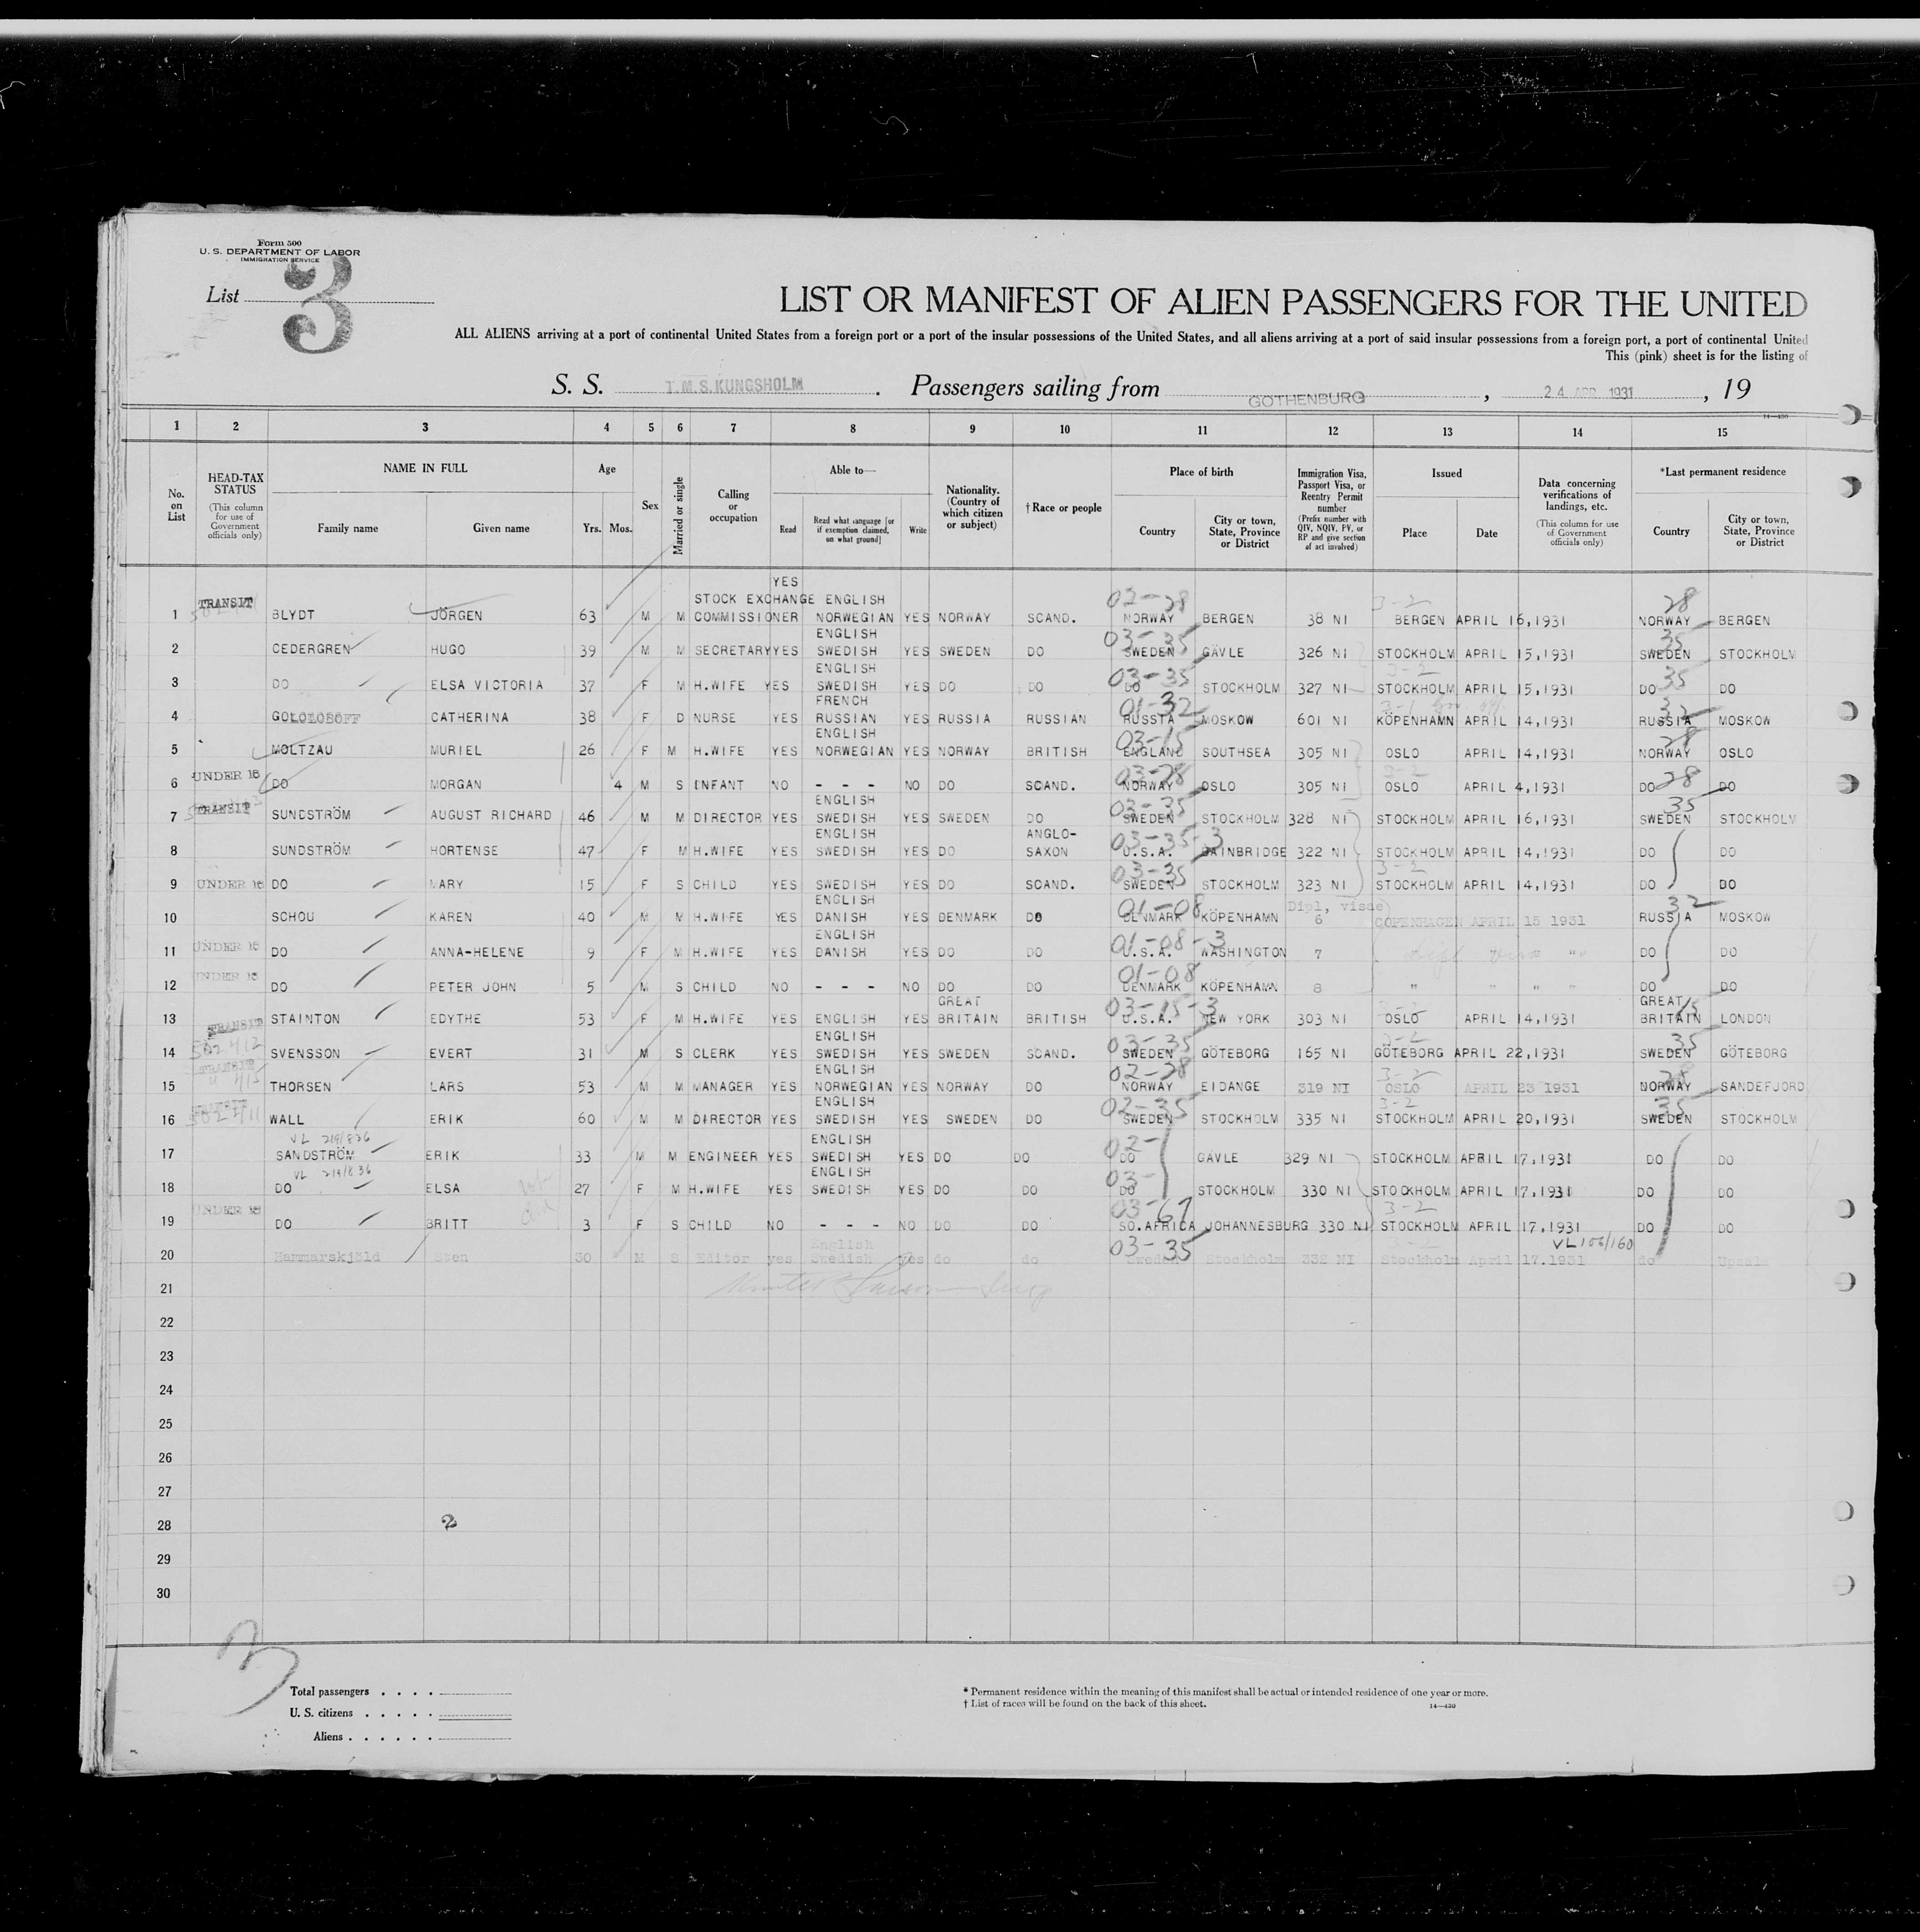 Form 500
U. S. DEPARTMENT OF LABOR
IMMIGRATION SERVICE
List 3
LIST OR MANIFEST OF ALIEN PASSENGERS FOR THE UNITED
ALL ALIENS arriving at a port of continental United States from a foreign port or a port of the insular possessions of the United States, and all aliens arriving at a port of said insular possessions from a foreign port, a port of continental United
This (pink) sheet is for the listing of
S. S. T.M.S. KUNGSHOLM . Passengers sailing from GOTHENBURG , 24 APR 1931 , 19
14—430
1 2 3 4 5 6 7 8 9 10 11 12 13 14 15
No. on List
HEAD-TAX STATUS (This column for use of Government officials only)
NAME IN FULL Family name Given name
Age Yrs. Mos.
Sex
Married or single
Calling or occupation
Able to— Read Read what language [or if exemption claimed, on what ground] Write
Nationality. (Country of which citizen or subject)
†Race or people
Place of birth Country City or town, State, Province or District
Immigration Visa, Passport Visa, or Reentry Permit number (Prefix number with QIV, NQIV, PV, or RP and give section of act involved)
Issued Place Date
Data concerning verifications of landings, etc. (This column for use of Government officials only)
*Last permanent residence Country City or town, State, Province or District
1 TRANSIT BLYDT JÖRGEN 63 M M STOCK EXCHANGE COMMISSIONER YES ENGLISH NORWEGIAN YES NORWAY SCAND. 02-28 NORWAY BERGEN 38 NI 3-2 BERGEN APRIL 16,1931 28 NORWAY BERGEN
2 CEDERGREN HUGO 39 M M SECRETARY YES ENGLISH SWEDISH YES SWEDEN DO 03-35 SWEDEN GÄVLE 326 NI STOCKHOLM APRIL 15,1931 35 SWEDEN STOCKHOLM
3 DO ELSA VICTORIA 37 F M H.WIFE YES ENGLISH SWEDISH YES DO DO 03-35 DO STOCKHOLM 327 NI 3-2 STOCKHOLM APRIL 15,1931 DO 35 DO
4 GOLOLOBOFF CATHERINA 38 F D NURSE YES FRENCH RUSSIAN YES RUSSIA RUSSIAN 01-32 RUSSIA MOSKOW 601 NI 3-1 KÖPENHAMN APRIL 14,1931 32 RUSSIA MOSKOW
5 MOLTZAU MURIEL 26 F M H.WIFE YES ENGLISH NORWEGIAN YES NORWAY BRITISH 03-15 ENGLAND SOUTHSEA 305 NI OSLO APRIL 14,1931 28 NORWAY OSLO
6 UNDER 16 DO MORGAN 4 M S INFANT NO - - - NO DO SCAND. 03-28 NORWAY OSLO 305 NI 3-2 OSLO APRIL 4,1931 DO 28 DO
7 TRANSIT SUNDSTRÖM AUGUST RICHARD 46 M M DIRECTOR YES ENGLISH SWEDISH YES SWEDEN DO 03-35 SWEDEN STOCKHOLM 328 NI STOCKHOLM APRIL 16,1931 35 SWEDEN STOCKHOLM
8 SUNDSTRÖM HORTENSE 47 F M H.WIFE YES ENGLISH SWEDISH YES DO ANGLO-SAXON 03-35-3 U.S.A. BAINBRIDGE 322 NI STOCKHOLM APRIL 14,1931 DO DO
9 UNDER 16 DO MARY 15 F S CHILD YES SWEDISH YES DO SCAND. 03-35 SWEDEN STOCKHOLM 323 NI 3-2 STOCKHOLM APRIL 14,1931 DO DO
10 SCHOU KAREN 40 M M H.WIFE YES ENGLISH DANISH YES DENMARK DO 01-08 DENMARK KÖPENHAMN Dipl, visde) 6 COPENHAGEN APRIL 15 1931 32 RUSSIA MOSKOW
11 UNDER 16 DO ANNA-HELENE 9 F M H.WIFE YES ENGLISH DANISH YES DO DO 01-08-3 U.S.A. WASHINGTON 7 " " DO DO
12 UNDER 16 DO PETER JOHN 5 M S CHILD NO - - - NO DO DO 01-08 DENMARK KÖPENHAMN 8 " " " " DO DO
13 STAINTON EDYTHE 53 F M H.WIFE YES ENGLISH YES GREAT BRITAIN BRITISH 03-15-3 U.S.A. NEW YORK 303 NI 3-2 OSLO APRIL 14,1931 GREAT BRITAIN 15 LONDON
14 TRANSIT 502412 SVENSSON EVERT 31 M S CLERK YES ENGLISH SWEDISH YES SWEDEN SCAND. 03-35 SWEDEN GÖTEBORG 165 NI 3-2 GÖTEBORG APRIL 22,1931 35 SWEDEN GÖTEBORG
15 TRANSIT THORSEN LARS 53 M M MANAGER YES ENGLISH NORWEGIAN YES NORWAY DO 02-28 NORWAY EIDANGE 319 NI 3-2 OSLO APRIL 23 1931 28 NORWAY SANDEFJORD
16 TRANSIT WALL ERIK 60 M M DIRECTOR YES ENGLISH SWEDISH YES SWEDEN DO 02-35 SWEDEN STOCKHOLM 335 NI 3-2 STOCKHOLM APRIL 20,1931 35 SWEDEN STOCKHOLM
17 VL 219/836 SANDSTRÖM ERIK 33 M M ENGINEER YES ENGLISH SWEDISH YES DO DO 02- DO GÄVLE 329 NI STOCKHOLM APRIL 17,1931 DO DO
18 VL 219/836 DO ELSA 27 F M H.WIFE YES ENGLISH SWEDISH YES DO DO 03- DO STOCKHOLM 330 NI STOCKHOLM APRIL 17,1931 DO DO
19 UNDER 16 DO BRITT 3 F S CHILD NO - - - NO DO DO 03-67 SO.AFRICA JOHANNESBURG 330 NI 3-2 STOCKHOLM APRIL 17,1931 DO DO
20 Hammarskjöld Sten 30 M S Editor yes English Swedish yes do do 03-35 Sweden Stockholm 332 NI 3-2 Stockholm April 17.1931 VL 106/160 do Upsala
21
22
23
24
25
26
27
28 2
29
30
3
Total passengers . . . .
U. S. citizens . . . . .
Aliens . . . . . .
* Permanent residence within the meaning of this manifest shall be actual or intended residence of one year or more.
† List of races will be found on the back of this sheet.
14—430